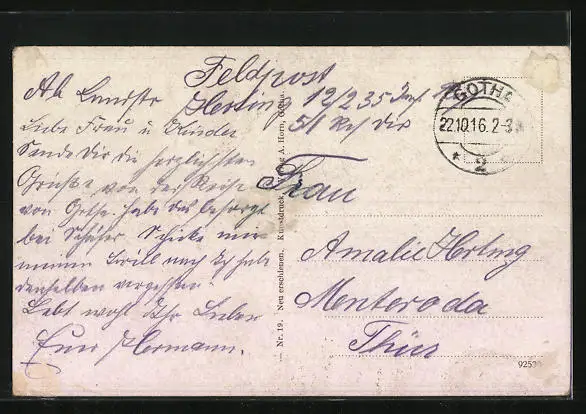 Feldpost
Ab. Landstr
Herting 12/235 Inf.
51 Res Div
GOTHA
22.10.16. 2-3
* 2
Liebe Frau u Kinder
Sende Dir die herzlichsten
Grüße von der Reise
von Gotha habe das besorgt
bei Schäfer. Schicke mir
meinen Brill nach Ich hab
denselben vergessen.
Lebt wohl Ihr Lieben
Euer Hermann.
Frau
Amalie Herting
Menteroda
Thür
Nr. 19. Neu erschienen. Kunstdruck A. Horn, Gotha.
9253